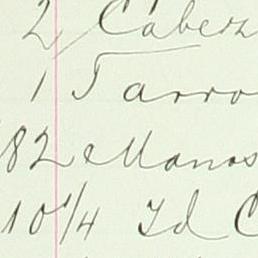 2 Cabez
1 Tarro
82 Manos
10 1/4 Id C